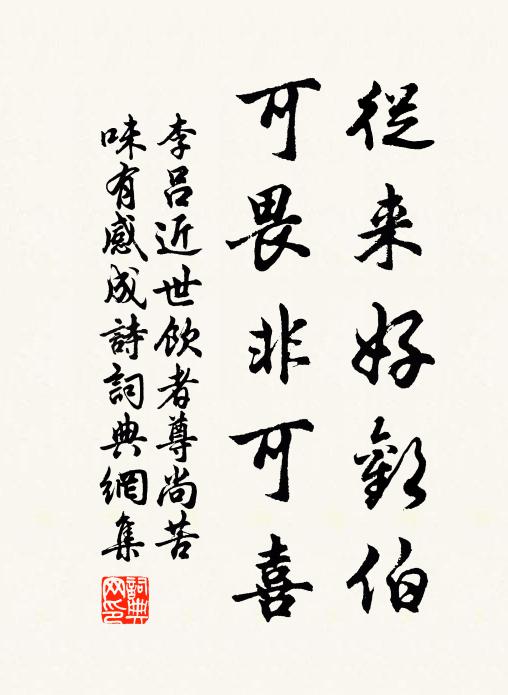 從来好歡伯
可畏非可喜
李吕近世飲者尊尚苦
味有感成詩詞典網集
詞典
网印